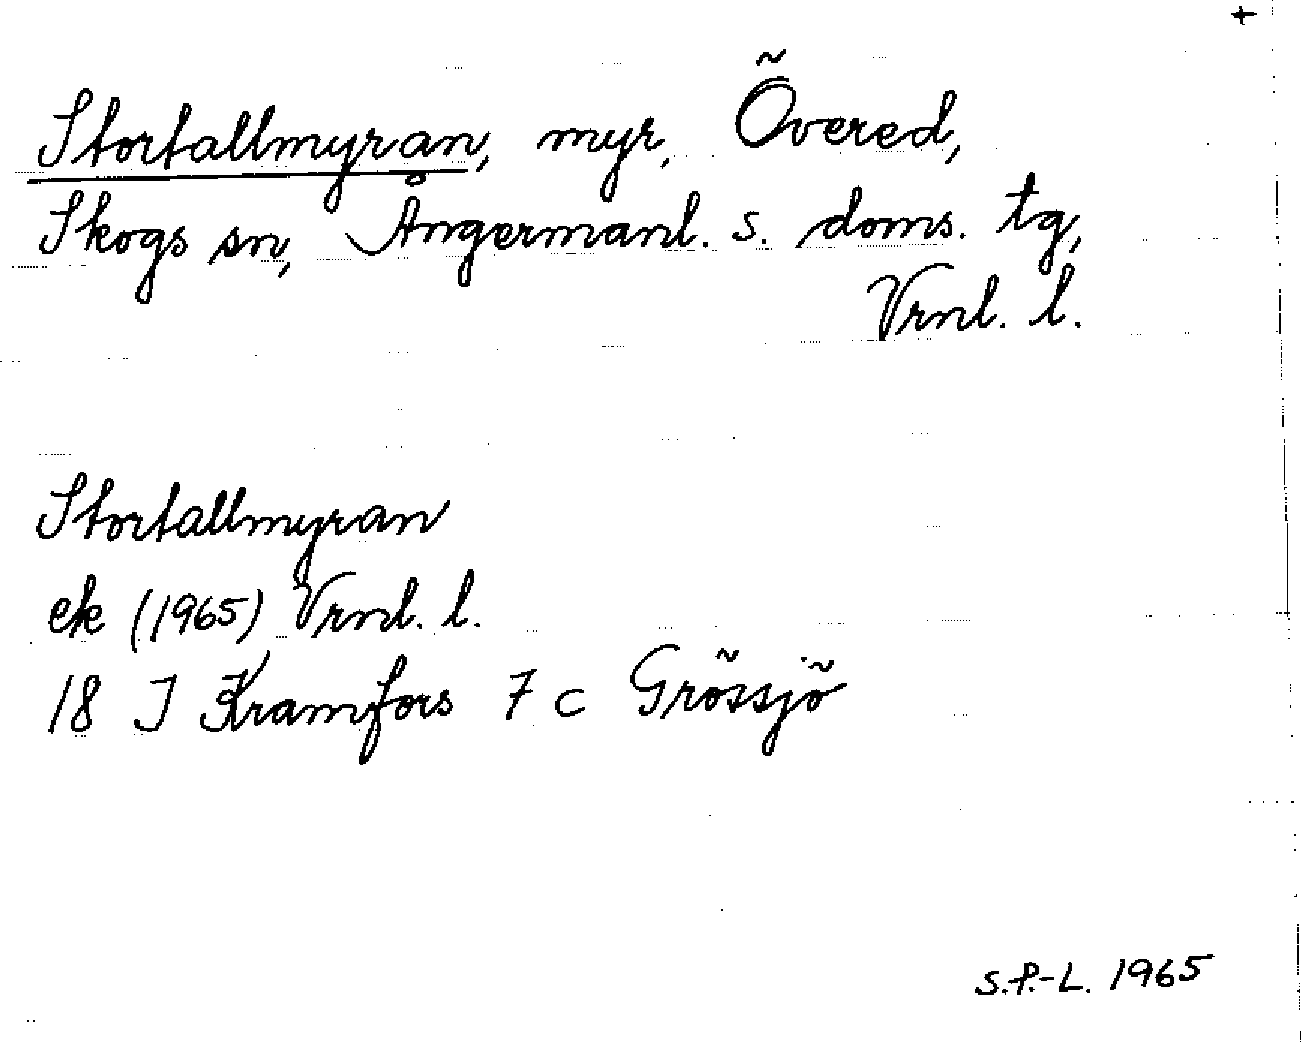 +
Stortallmyran, myr, Övered,
Skogs sn, Ångermanl. s. doms. tg,
Vrnl. l.
Stortallmyran
ek (1965) Vrnl. l.
18 J Kramfors 7 c Grössjö
S.P.-L. 1965